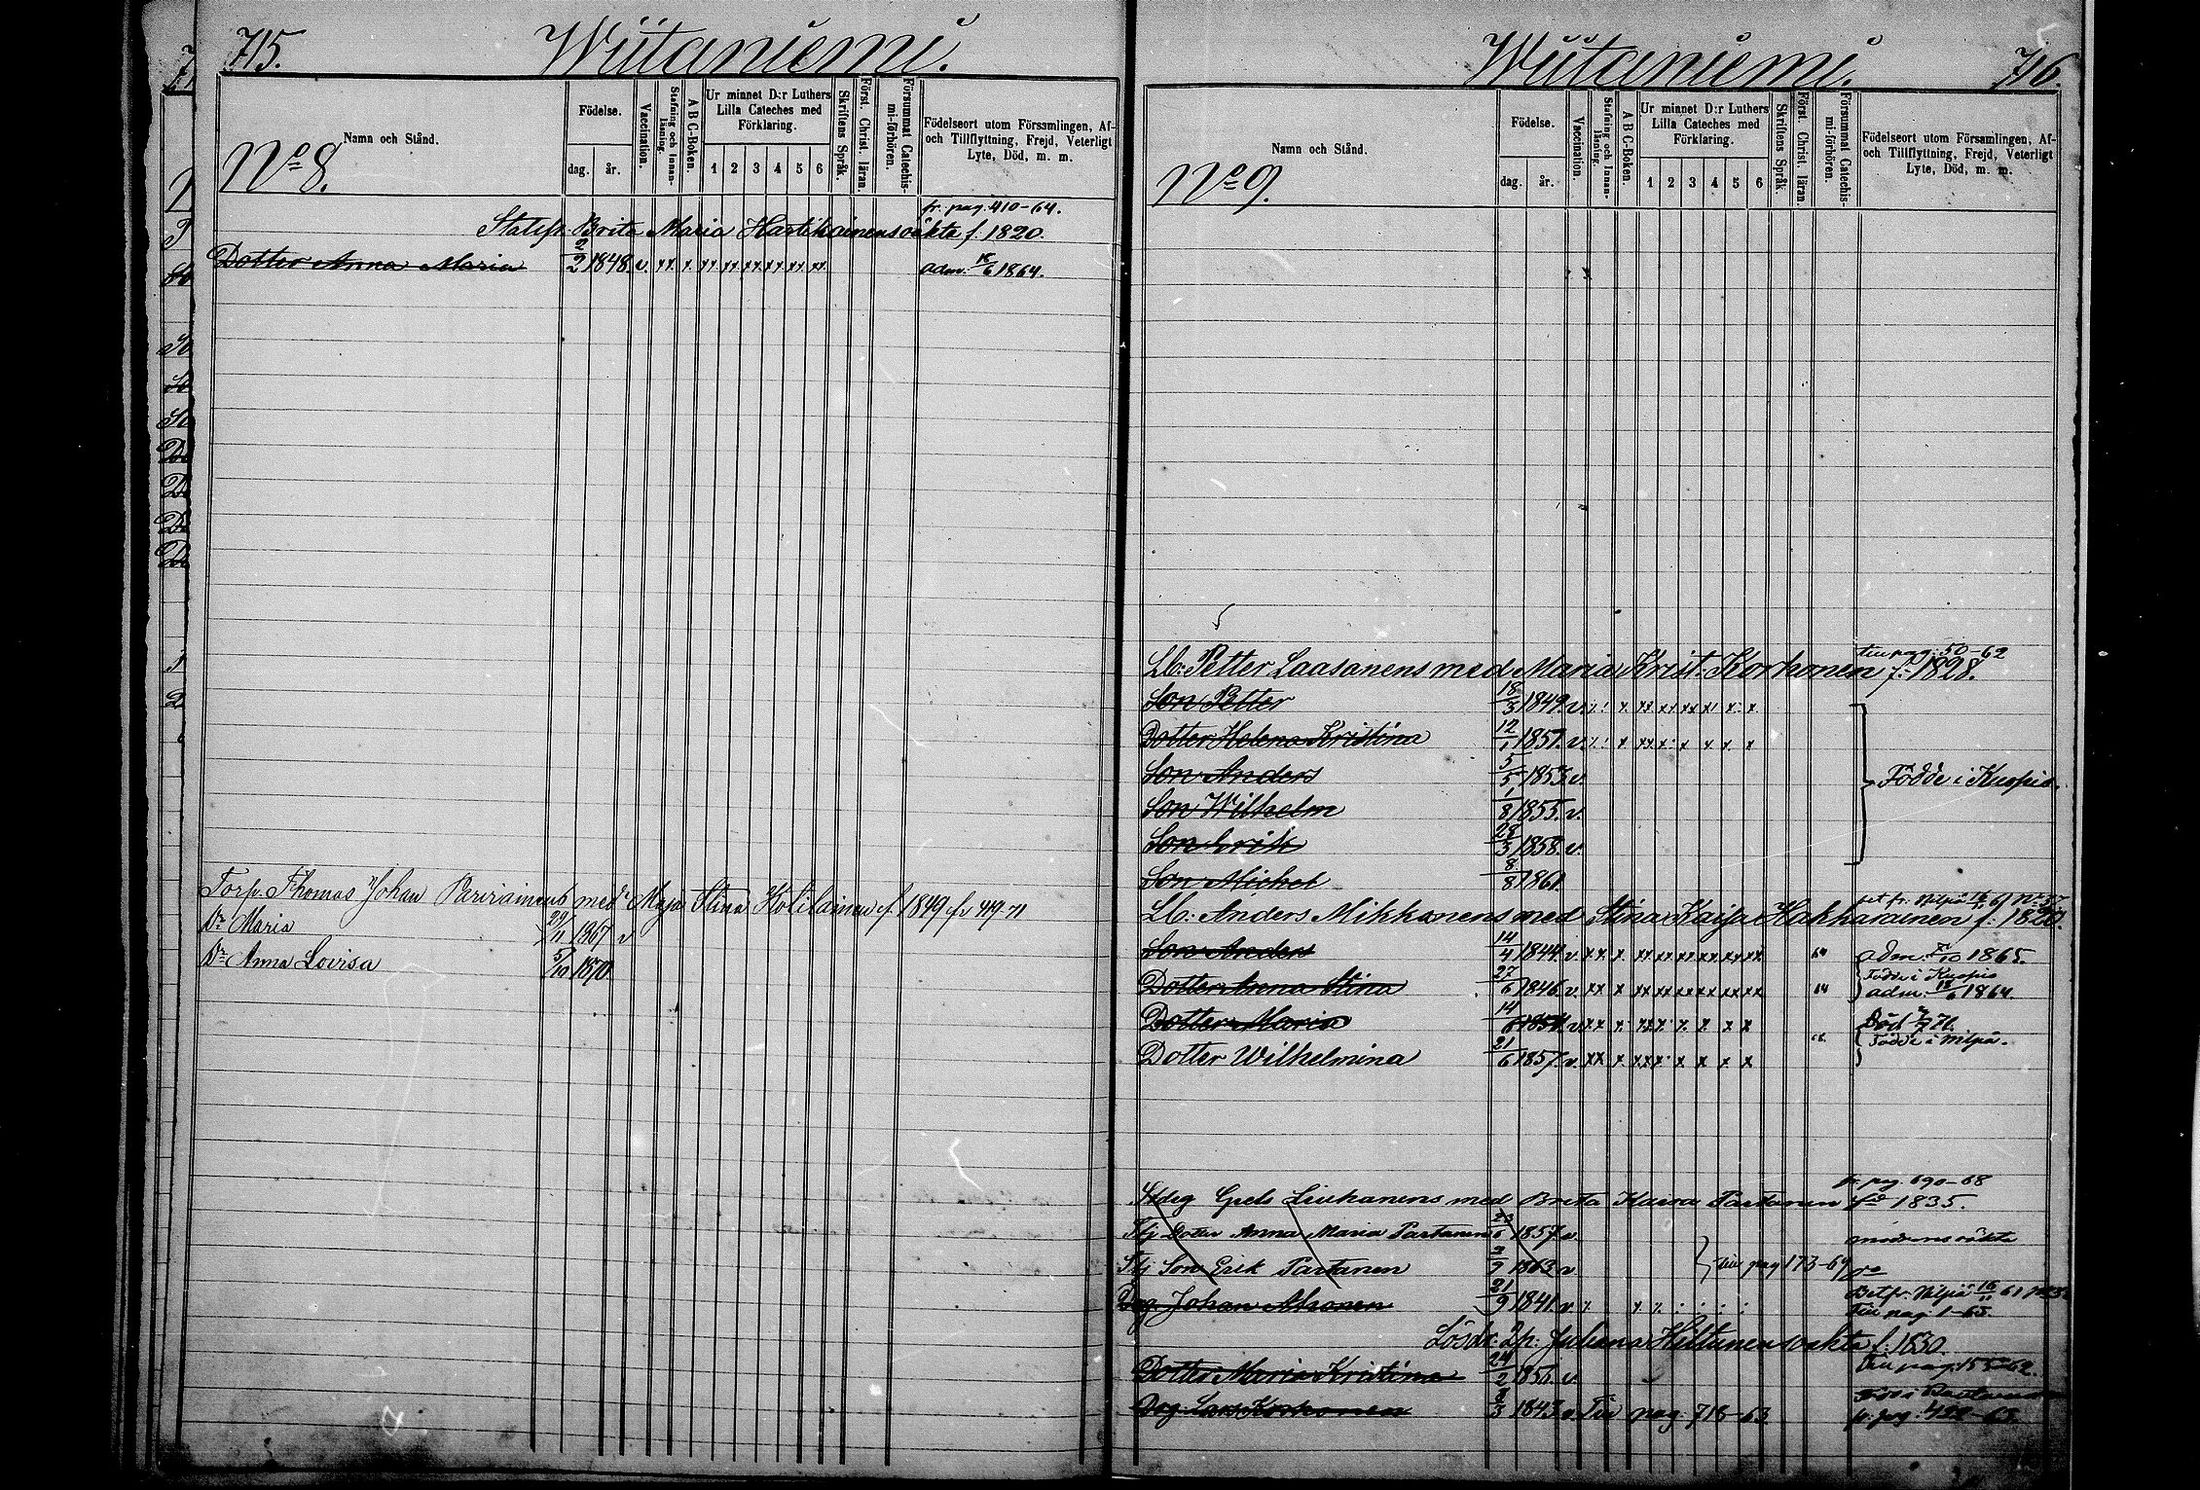 715. Wiitaniemi.
Namn och Stånd.
Födelse.
dag. år.
Vaccination.
Stafning och Innanläsning.
A B C-Boken.
Ur minnet D:r Luthers Lilla Cateches med Förklaring.
1 2 3 4 5 6
Skriftens Språk
Först. Christ. läran.
Försummat Catechismi-förhören.
Födelseort utom Församlingen, Af- och Tillflyttning, Frejd, Veterligt Lyte, Död, m. m.
No 8.
fr. pag. 410-64.
Brita Maria Hartikainens oäkta f. 1820.
Dotter Anna Maria 2/2 1848. v. xx x xx xx xx xx xx xx adm. 6 1864.
Torp. Thomas Johan med Maja Stina f. 1849 fr 419-71
Dr Maria 29/11 1867 v
Dr Anna Lovisa 5/10 1870
Wiitaniemi. 716.
Namn och Stånd.
Födelse.
dag. år.
Vaccination.
Stafning och Innanläsning.
A B C-Boken.
Ur minnet D:r Luthers Lilla Cateches med Förklaring.
1 2 3 4 5 6
Skriftens Språk
Först. Christ. läran.
Försummat Catechismi-förhören.
Födelseort utom Församlingen, Af- och Tillflyttning, Frejd, Veterligt Lyte, Död, m. m.
No 9.
pag. 50-62
Lb: Petter Laasanens med Maria Krist: Korhonen f. 1828.
Son Petter 18/3 1849. v.
Dotter Helena Kristina 12/1 1851. v.
Son Anders 5/5 1853. v.
Födde i Kuopio.
Son Wilhelm 1/8 1855. v.
Son Erik 28/3 1858. v.
Son Michel 8/8 1861.
Lb: Anders Mikkonens med Stina Kaisa Hakkarainen f. 1820.
Son Anders 14/4 1844. v. xx x xx xx xx xx xx xx 64 adm. 1865.
Födde i Kuopio
Dotter Anna Stina 27/6 1846. v. xx x xx xx xx xx xx xx 64 adm. 18/6 1864.
Dotter Maria 14/6 1851. v. xx x Död
Födde i Nilsiä.
Dotter Wilhelmina 21/6 1857. v. xx x xx x x x x x
fr. pag. 690-68
Grels Liuhanens med Brita Kaisa Partanen 1835.
Dotter Anna Maria Partanen 1857. v. moderns oäkta
Son Erik Partanen 1863 v. pag 173-69 do
Dräg. Johan 21/9 1841. v. Bet. fr. Nilsiä
pag. 1-65.
Juliana Hiltunens oäkta f. 1830.
Dotter Maria Kristina 24/2 1856. v. pag.
Dräg. Lars Korhonen 1843 v. pag. 718-63
fr. pag.